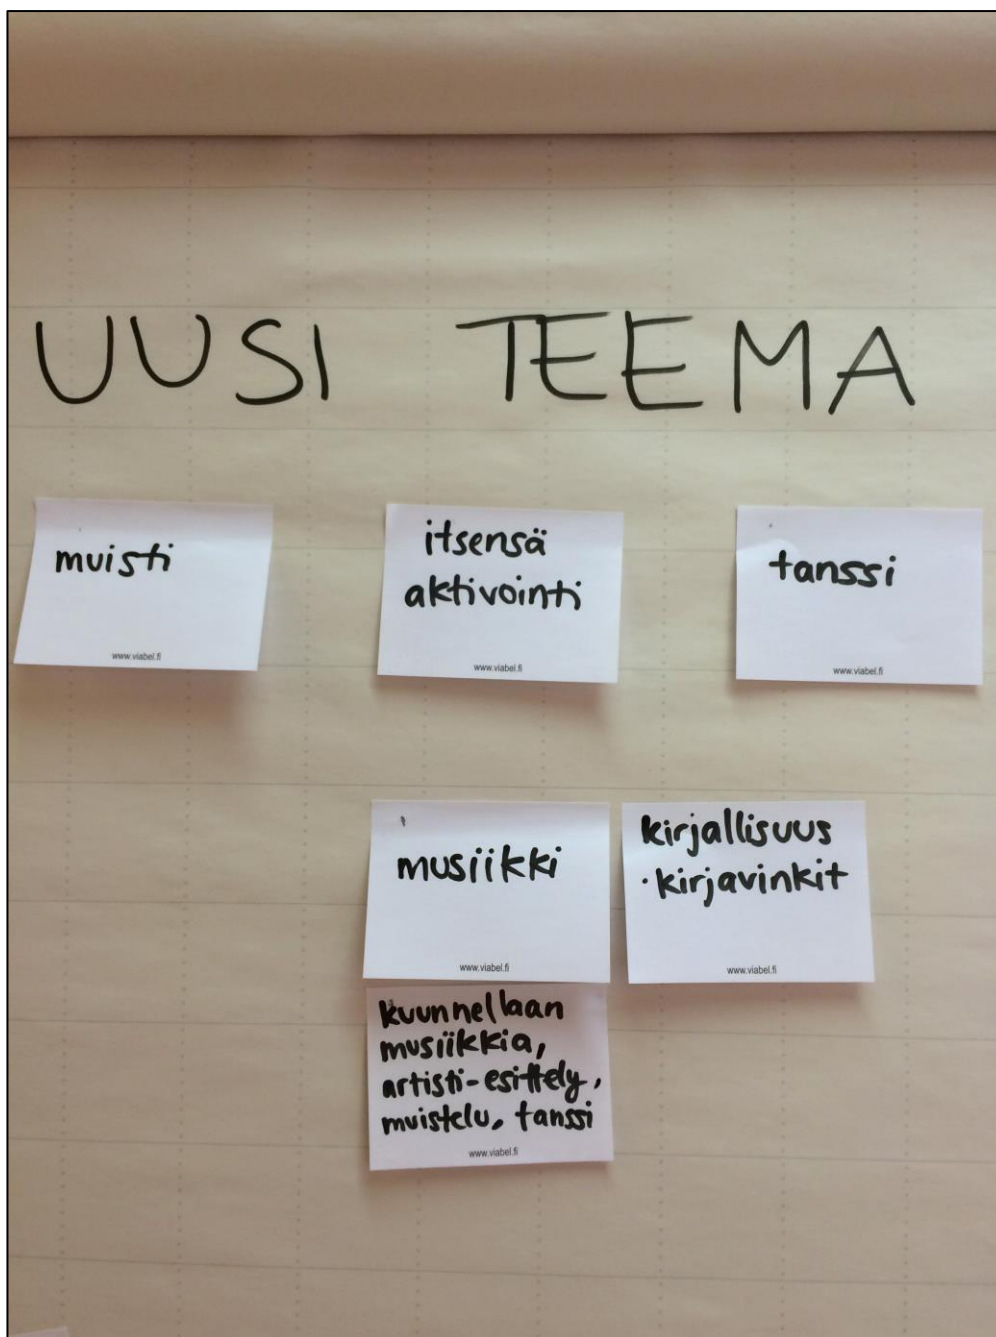 UUSI TEEMA
muisti
www.viabel.fi
itsensä
aktivointi
www.viabel.fi
tanssi
www.viabel.fi
musiikki
www.viabel.fi
kirjallisuus
· kirjavinkit
www.viabel.fi
kuunnellaan
musiikkia,
artisti-esittely,
muistelu, tanssi
www.viabel.fi